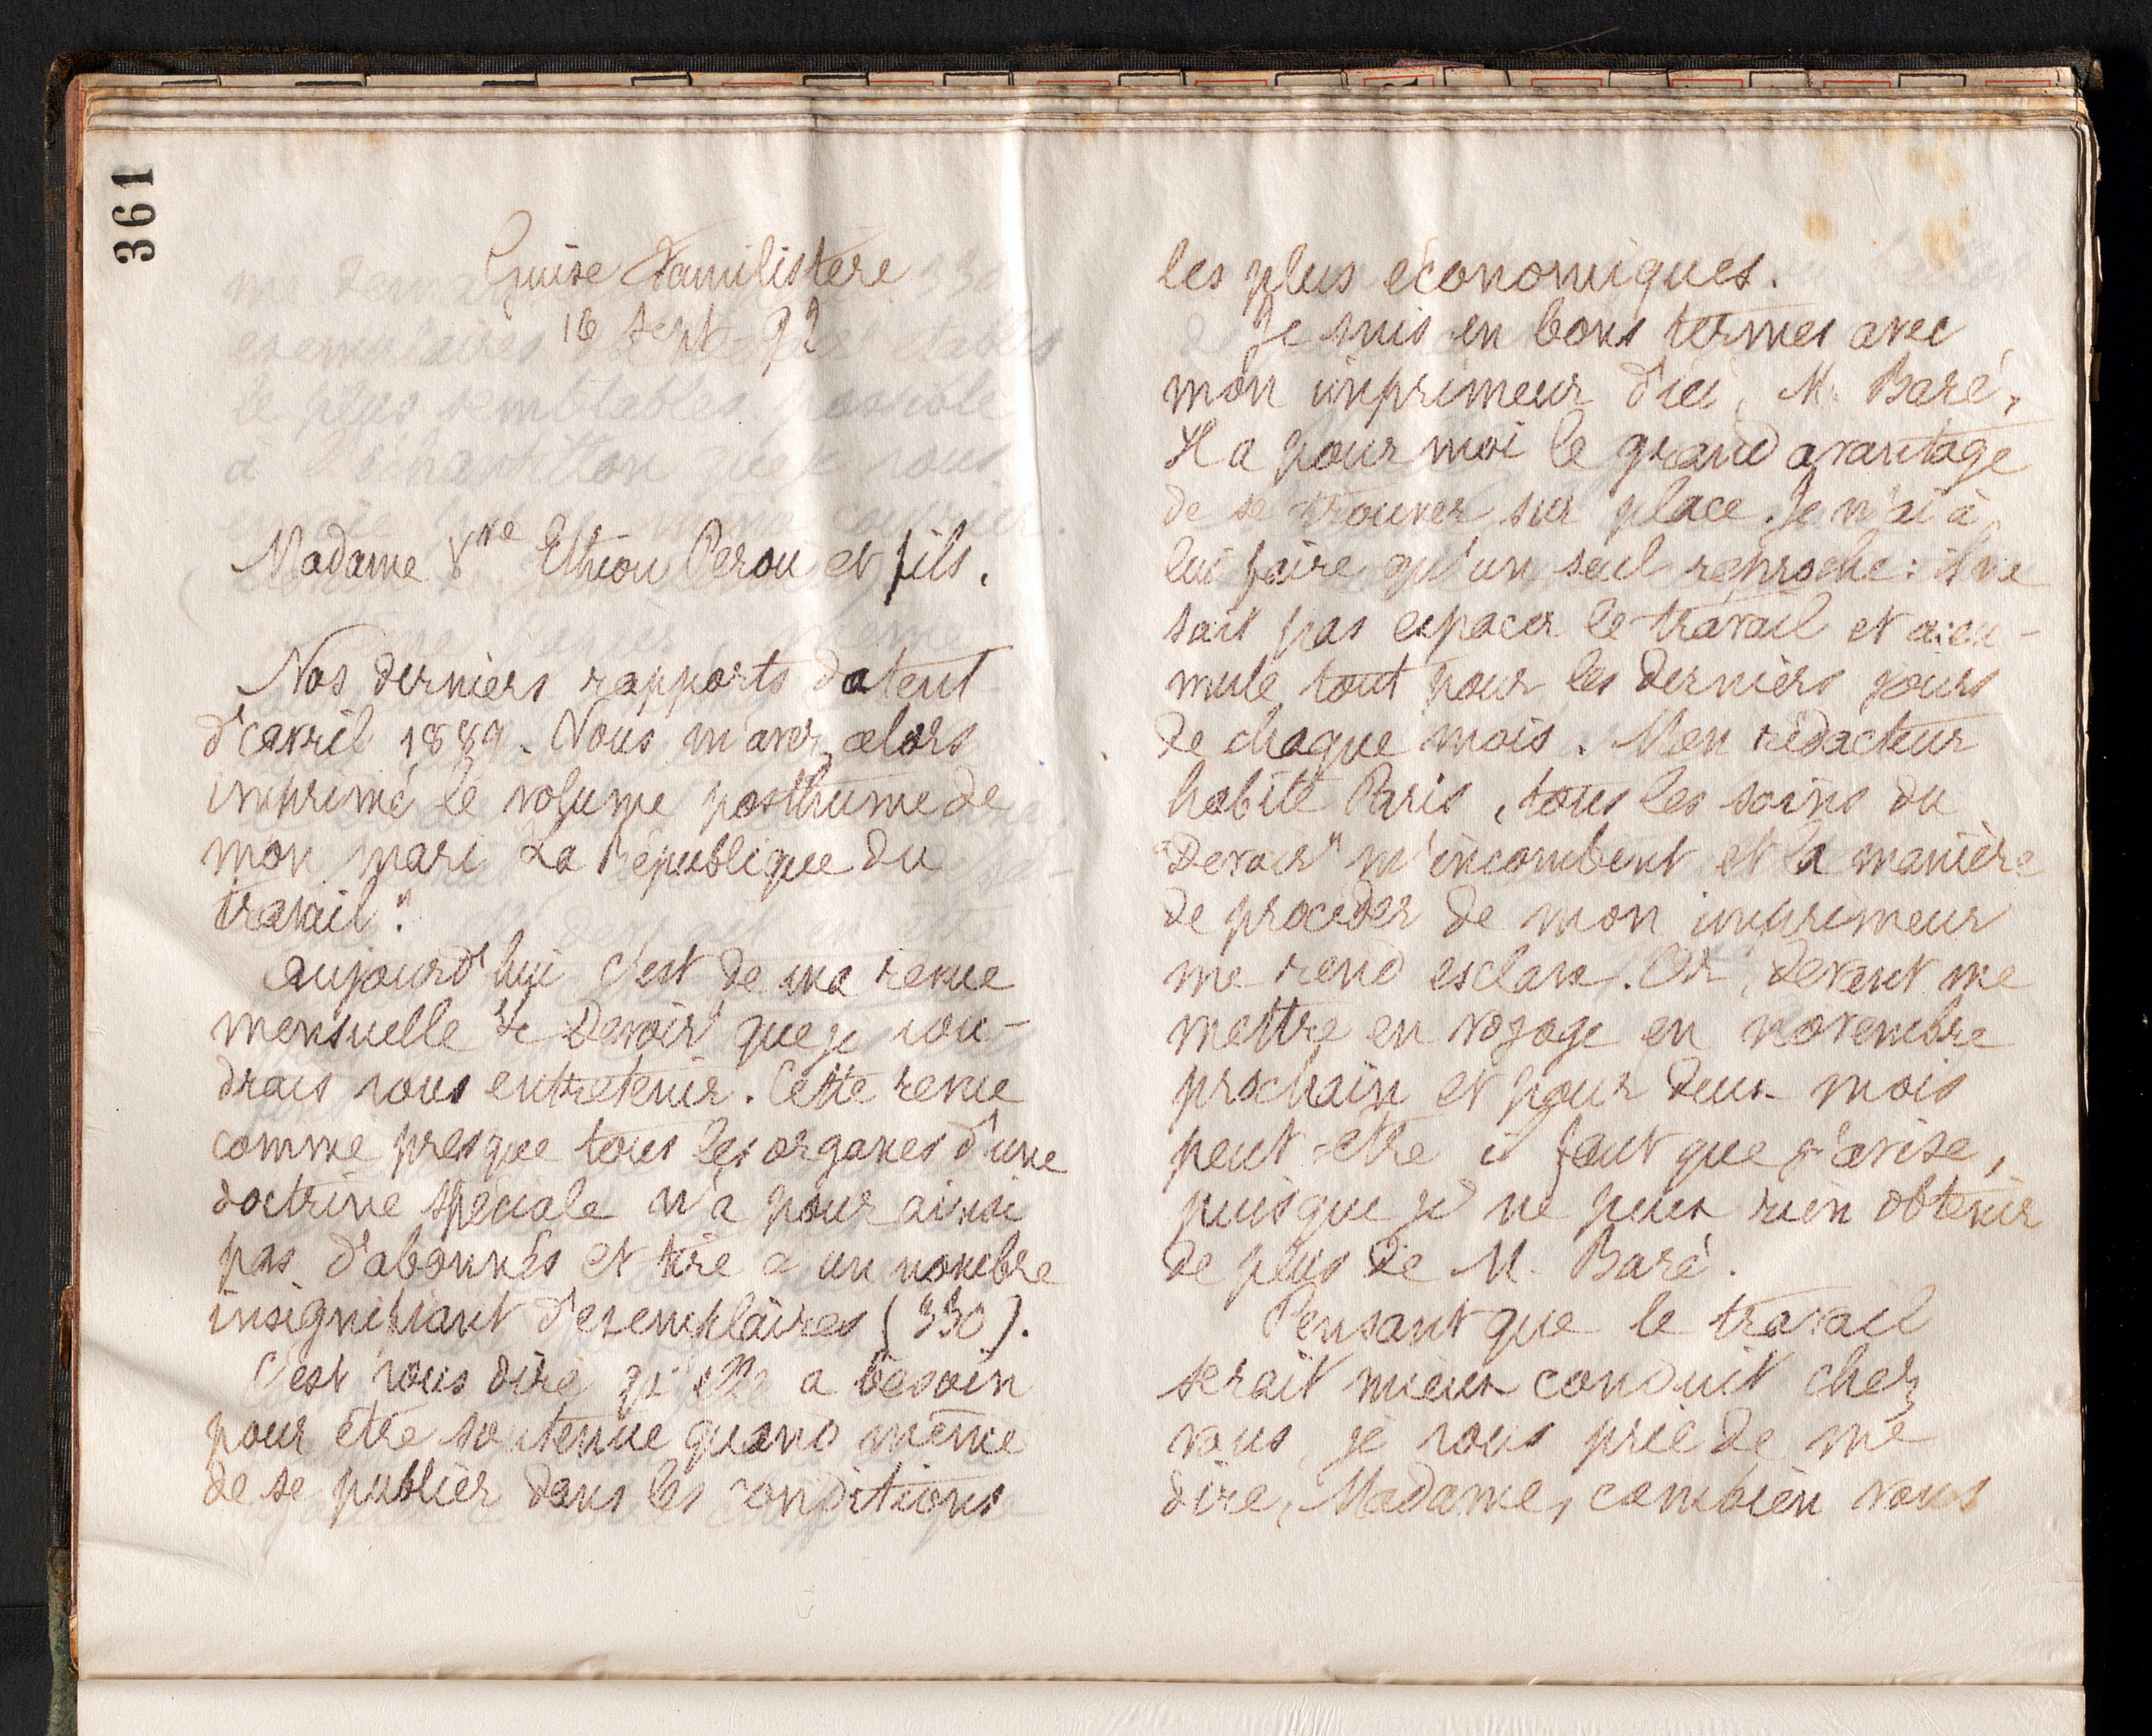 361
Guise Familistère
16 sept. 92
Madame Vve Ethiou Perou et fils.
Nos derniers rapports datent
d'avril 1889. Vous m'avez alors
imprimé le volume posthume de
mon mari La République du
travail".
Aujourd'hui c'est de ma revue
mensuelle "Le Devoir" que je vou-
drais vous entretenir. Cette revue
comme presque tous les organes d'une
doctrine spéciale n'a pour ainsi
pas d'abonnés et tire à un nombre
insignifiant d'exemplaires (330).
C'est vous dire qu'elle a besoin
pour être soutenue quand même
de se publier dans les conditions
les plus économiques.
Je suis en bons termes avec
mon imprimeur d'ici, M. Baré,
Il a pour moi le grand avantage
de se trouver sur place. Je n'ai à
lui faire qu'un seul reproche : il ne
sait pas espacer le travail et accu-
mule tout pour les derniers jours
de chaque mois. Mon rédacteur
habite Paris, tous les soins du
"Devoir" m'incombent et la manière
de procéder de mon imprimeur
me rend esclave. Or, devant me
mettre en voyage en novembre
prochain et pour deux mois
peut-être il faut que j'avise,
puisque je ne peux rien obtenir
de plus de M. Baré.
Pensant que le travail
serait mieux conduit chez
vous, je vous prie de me
dire, Madame, combien vous